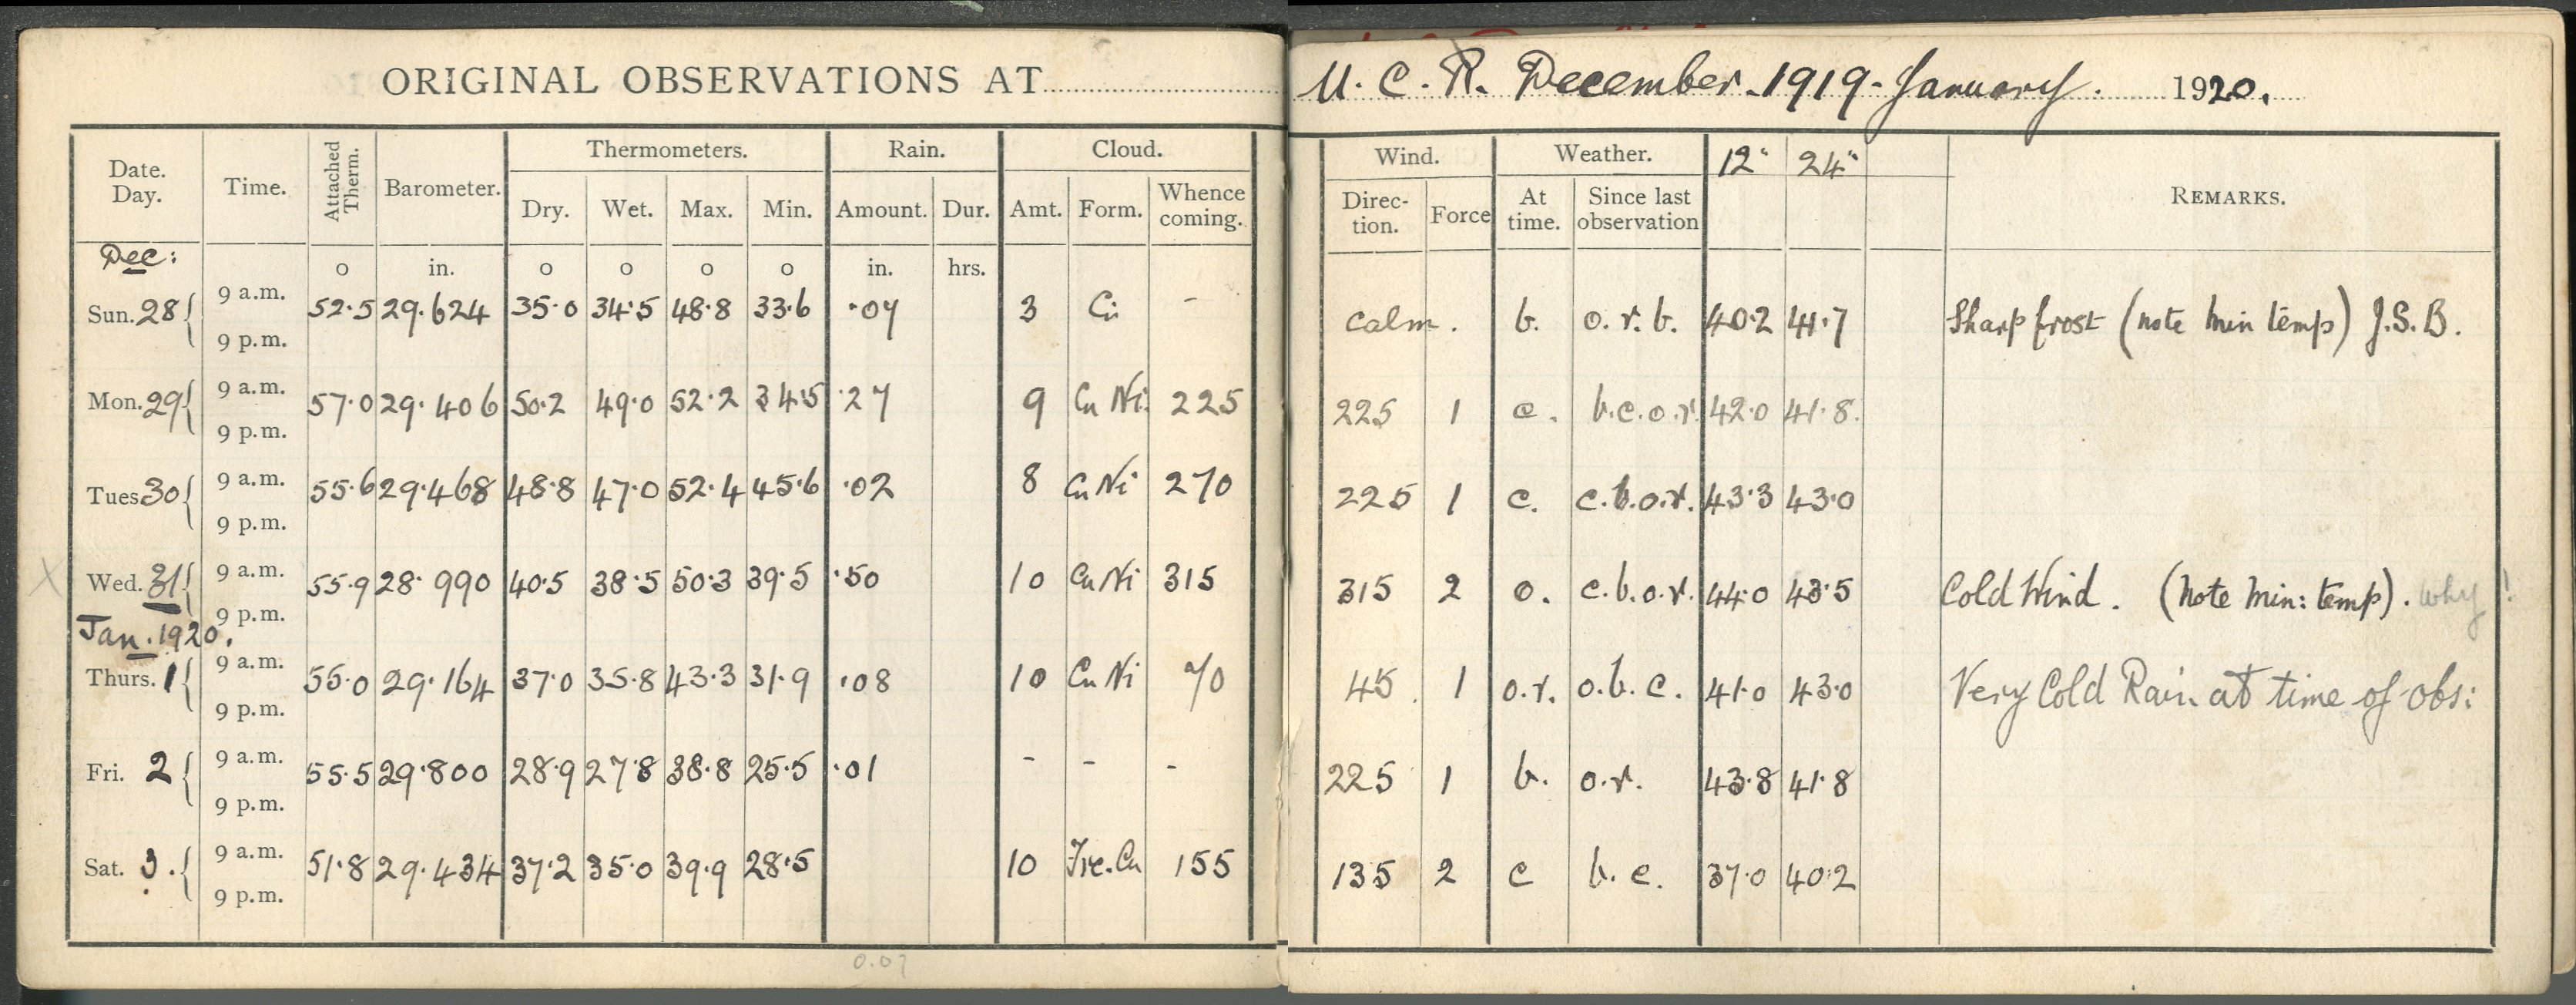 ORIGINAL OBSERVATIONS AT U. C. R. December. 1919. January. 1920.
Date. Day. Time. Attached Therm. Barometer. Thermometers. Rain. Cloud. Wind. Weather. 12" 24" REMARKS.
Dry. Wet. Max. Min. Amount. Dur. Amt. Form. Whence coming. Direc- tion. Force At time. Since last observation
Dec:
o in. o o o o in. hrs.
Sun. 28 9 a.m. 52.5 29.624 35.0 34.5 48.8 33.6 .07 3 Ci - calm. b. o.r.b. 40.2 41.7 Sharp frost (note min temp) J.S.B.
9 p.m.
Mon. 29 9 a.m. 57.0 29.406 50.2 49.0 52.2 34.5 .27 9 Cu Ni. 225 225 1 c. b.c.o.r. 42.0 41.8.
9 p.m.
Tues 30 9 a.m. 55.6 29.468 48.8 47.0 52.4 45.6 .02 8 Cu Ni 270 225 1 c. c.b.o.r. 43.3 43.0
9 p.m.
X Wed. 31 9 a.m. 55.9 28.990 40.5 38.5 50.3 39.5 .50 10 Cu Ni 315 315 2 o. c.b.o.r. 44.0 43.5 Cold Wind. (note min: temp). why!
9 p.m.
Jan. 1920.
Thurs. 1 9 a.m. 55.0 29.164 37.0 35.8 43.3 31.9 .08 10 Cu Ni 70 45. 1 o.r. o.b.c. 41.0 43.0 Very Cold Rain at time of obs:
9 p.m.
Fri. 2 9 a.m. 55.5 29.800 28.9 27.8 38.8 25.5 .01 - - - 225 1 b. o.r. 43.8 41.8
9 p.m.
Sat. 3. 9 a.m. 51.8 29.434 37.2 35.0 39.9 28.5 10 Fre.Cu 155 135 2 c b.c. 37.0 40.2
9 p.m.
0.07